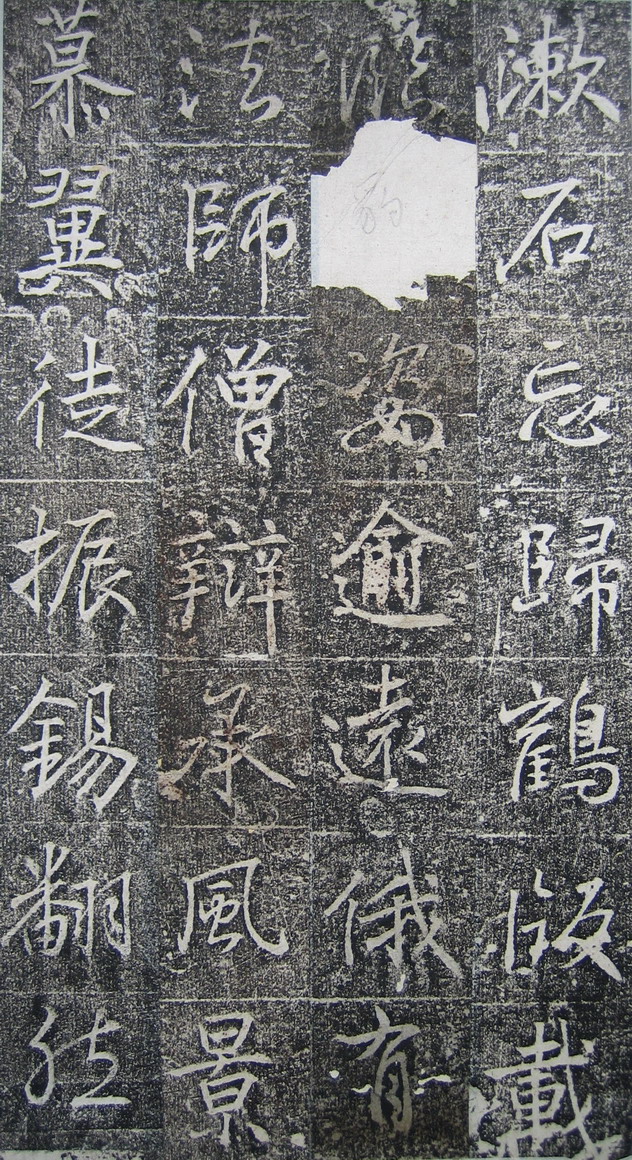 漱石忘歸鶴皈載
姿逾遠俄有
法師僧辯承風景
慕翼徒振錫翻